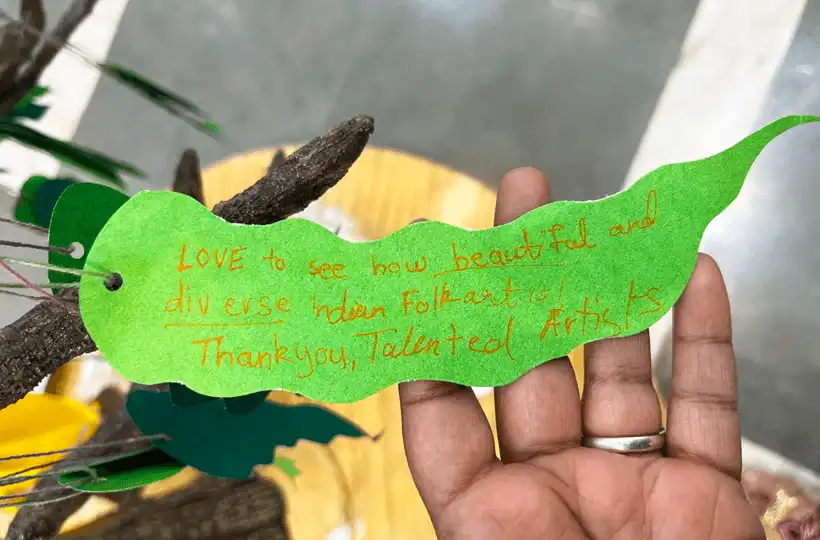 LOVE to see how beautiful and
diverse Indian Folk art is!
Thankyou, Talented Artists